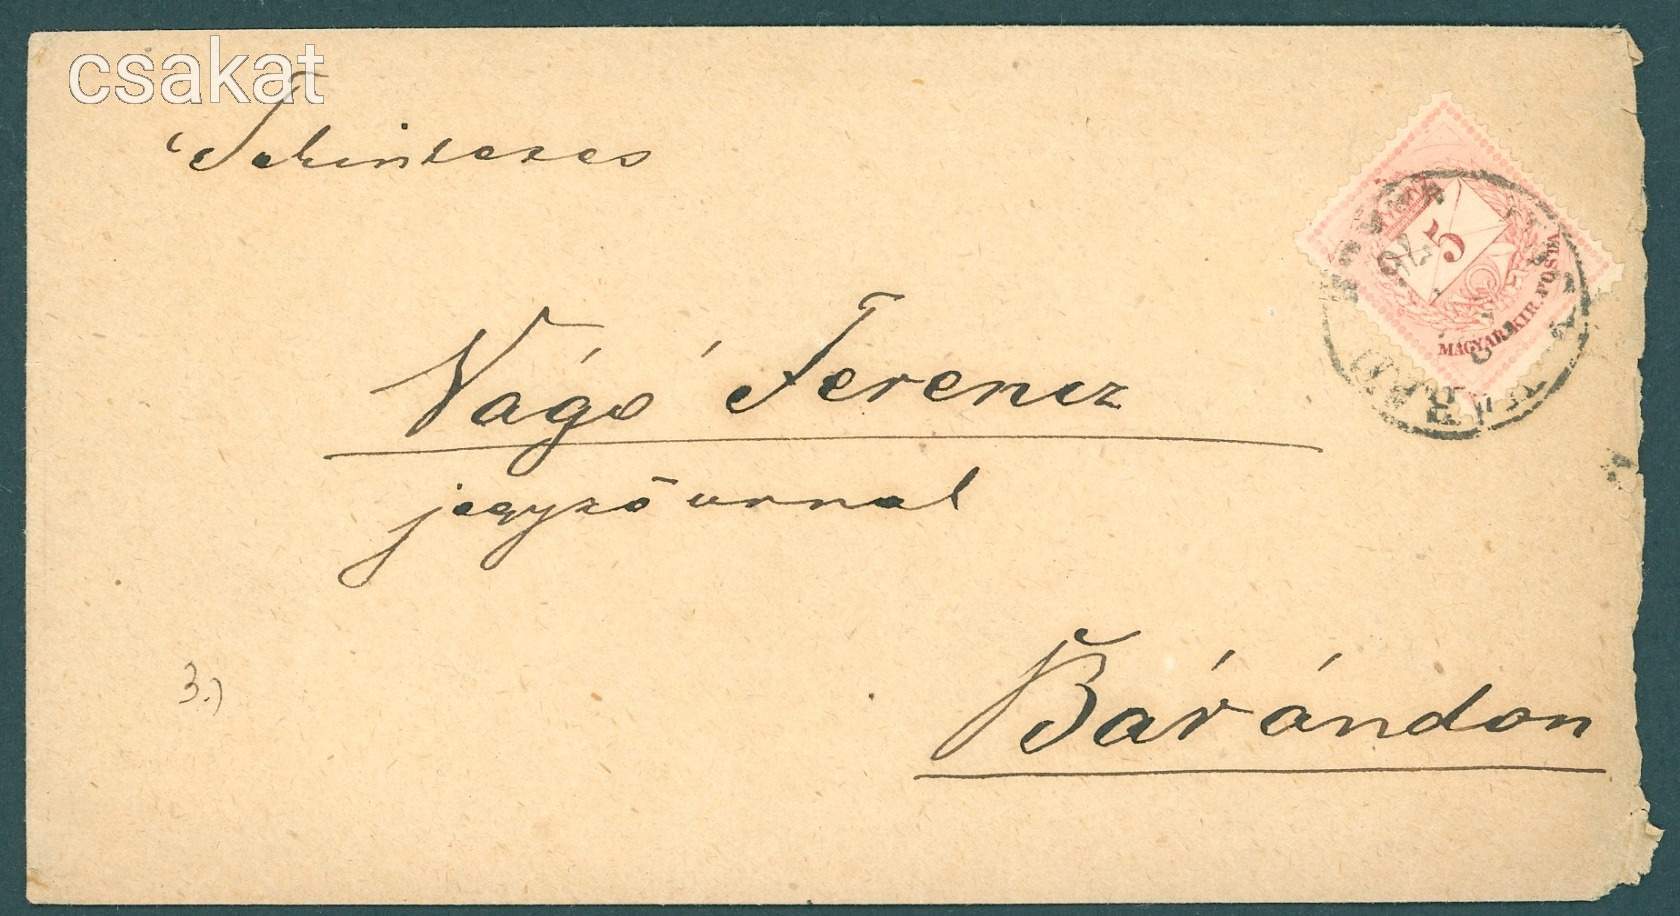 csakat
Tekintetes
5
MAGYAR KIR. POSTA
Vágó Ferencz
jegyző urnak
Bárándon
3.)